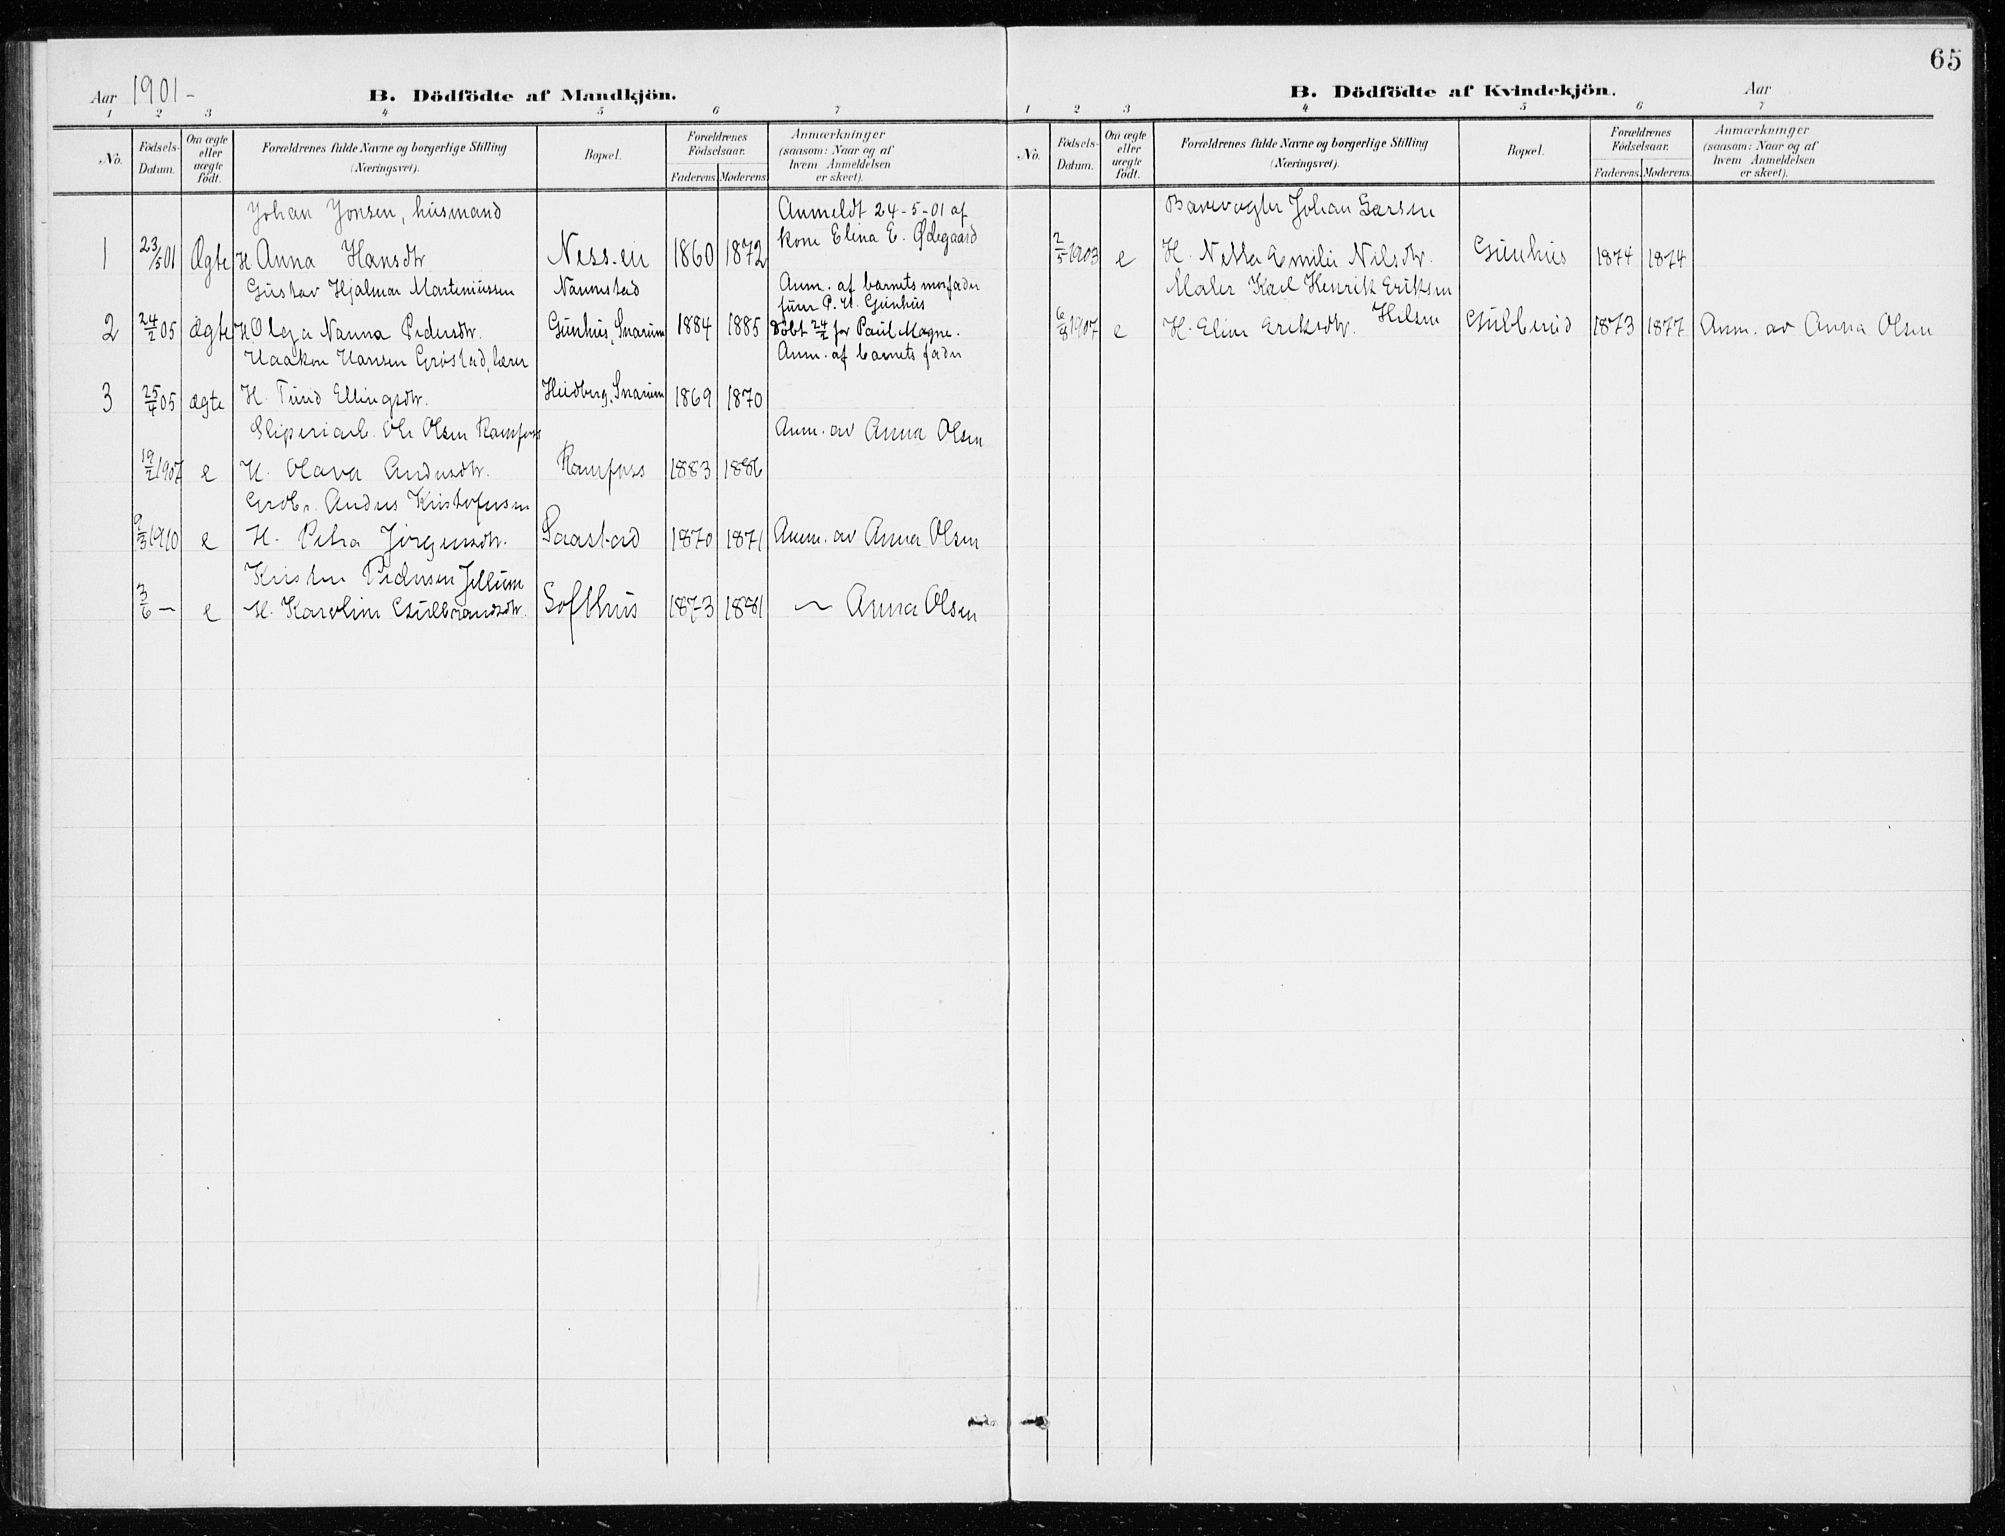 65
Aar 1901-
B. Dödfödte af Mandkjön.
1 2 3 4 5 6 7
No.
Födsels-
Datum.
Om ægte
eller
uægte
födt.
Forældrenes fulde Navne og borgerlige Stilling
(Næringsvei).
Bopæl.
Forældrenes
Födselsaar.
Faderens. Moderens.
Anmærkninger
(saasom: Naar og af
hvem Anmeldelsen
er skeet).
Johan Jonsen, husmand
Anmeldt 24-5-01 af
kone Elina E. Ødegaard
1 23/5 01 Ægte H Anna Hansdtr Ness-eie 1860 1872
Gustav Hjalmar Marteniussen Nannestad Anm. af barnets morfader
furer P. H. Gunhus
2 24/2 05 ægte H Olga Nanna Pedersdtr. Gunhus, Snarum 1884 1885 Døbt 24/2 for Paul Magne.
Haakon Hansen Grøstad, lærer Anm. af barnets fader
3 25/4 05 ægte H. Turid Ellingsdtr. Heidberg, Snarum 1869 1870
Sliperiarb. Ole Olsen Ramfoss Anm. av Anna Olsen
19/2 1907 e H. Olava Andersdtr. Ramfoss 1883 1886
Grdbr. Anders Kristofersen
9/3 1910 e H. Petra Jørgensdtr. Saastad 1870 1871 Anm. av Anna Olsen
Kristen Pedersen Jellum
3/6 — e H. Karoline Gulbrandsdtr. Softhus 1873 1881 ~ Anna Olsen
B. Dödfödte af Kvindekjön.
Aar
1 2 3 4 5 6 7
No.
Födsels-
Datum.
Om ægte
eller
uægte
födt.
Forældrenes fulde Navne og borgerlige Stilling
(Næringsvei).
Bopæl.
Forældrenes
Födselsaar.
Faderens. Moderens.
Anmærkninger
(saasom: Naar og af
hvem Anmeldelsen
er skeet).
Banevogter Johan Larsen
2/5 1903 e H. Netta Emilie Nilsdtr. Gunhus 1874 1874
Maler Karl Henrik Eriksen
Hilsen
6/8 1907 e H. Eline Eriksdtr. Gulbrud 1873 1877 Anm. av Anna Olsen